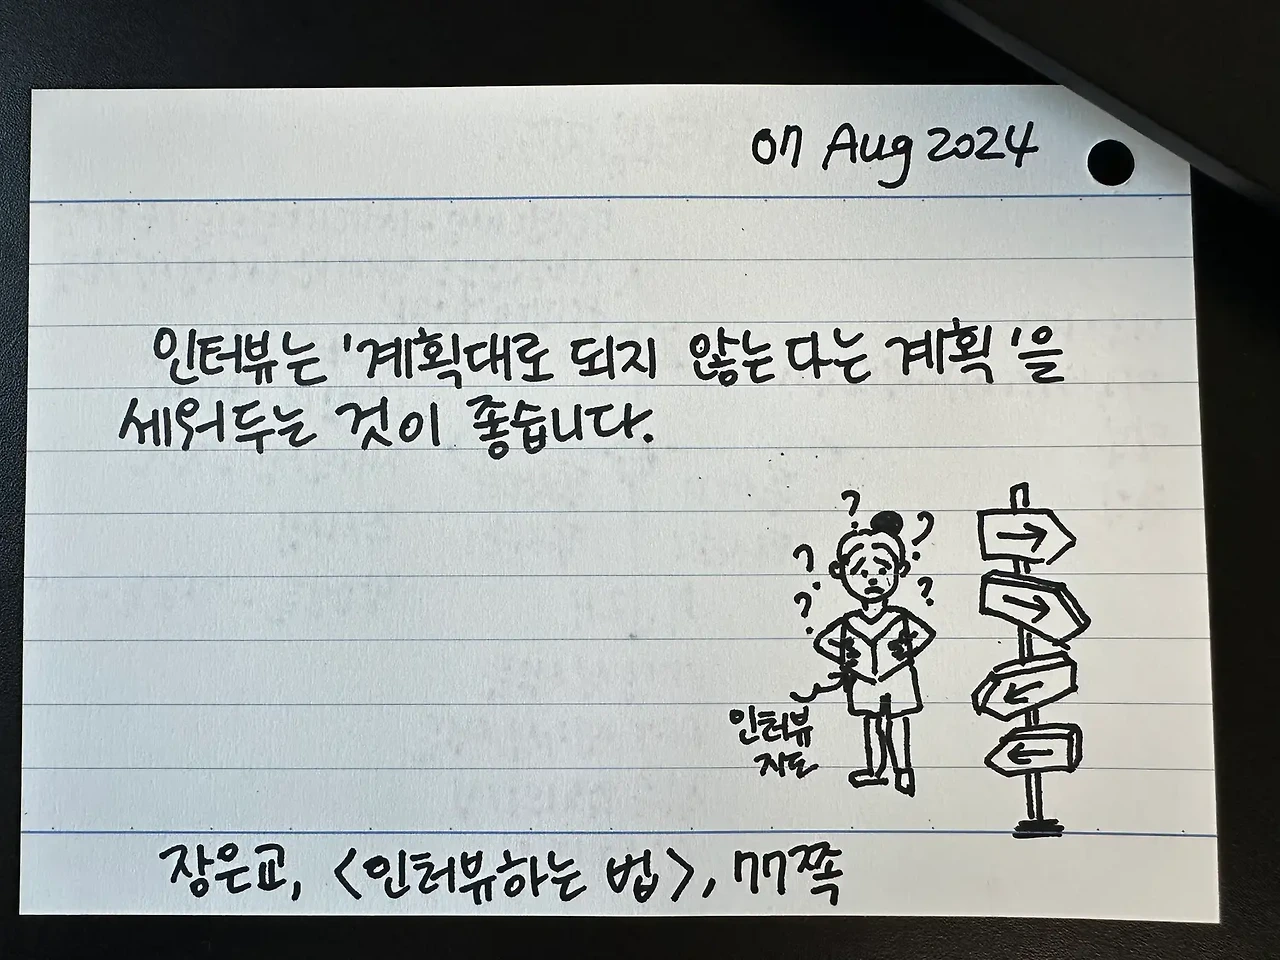 07 Aug 2024
인터뷰는 '계획대로 되지 않는다는 계획'을
세워두는 것이 좋습니다.
? ? ? ? ?
인터뷰
지도
장은교, <인터뷰하는 법>, 77쪽